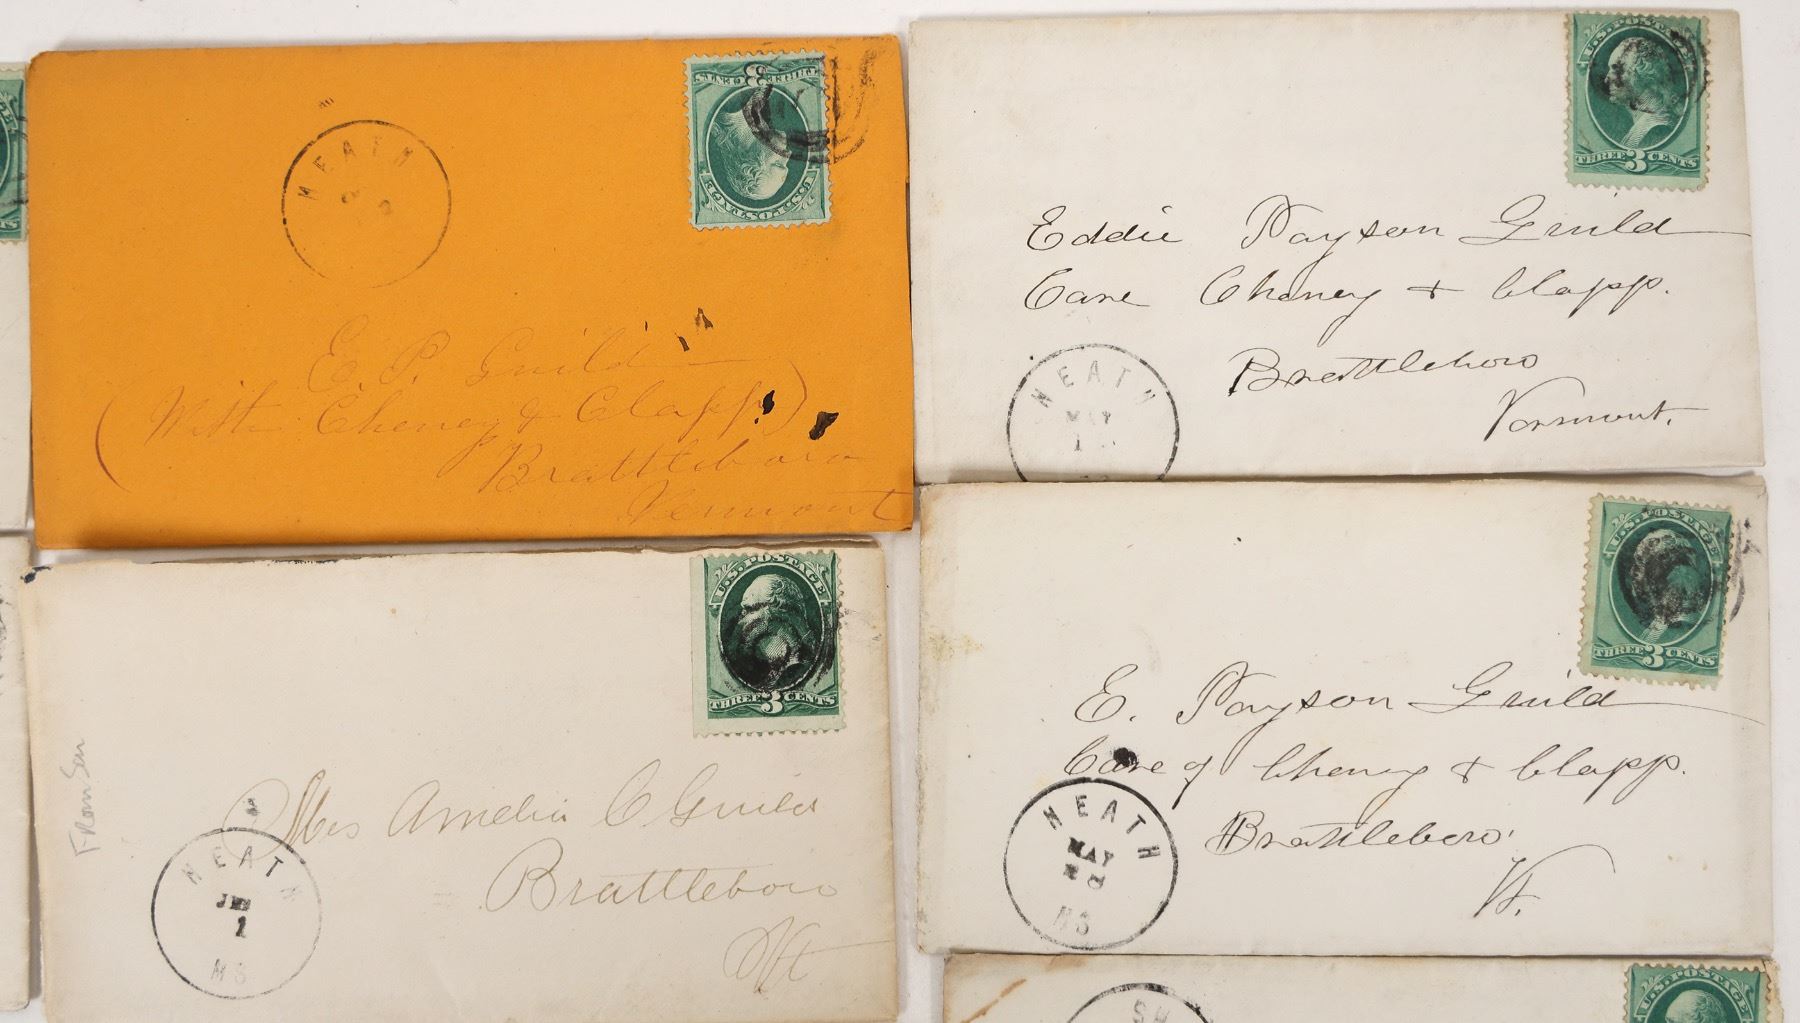 HEATH
U.S. POSTAGE
THREE 3 CENTS
E. P. Guild
(With Cheney & Clapp)
Brattleboro
Vermont
U.S. POSTAGE
THREE 3 CENTS
Eddie Payson Guild
Care Cheney & Clapp.
Brattleboro
Vermont.
HEATH
MAY
1
U.S. POSTAGE
THREE 3 CENTS
From Sen
Amelia C Guild
Brattleboro
Vt
HEATH
1
MS
U.S. POSTAGE
THREE 3 CENTS
E. Payson Guild
Care of Cheney & Clapp.
Brattleboro
Vt.
HEATH
MAY
MS
U.S. POSTAGE